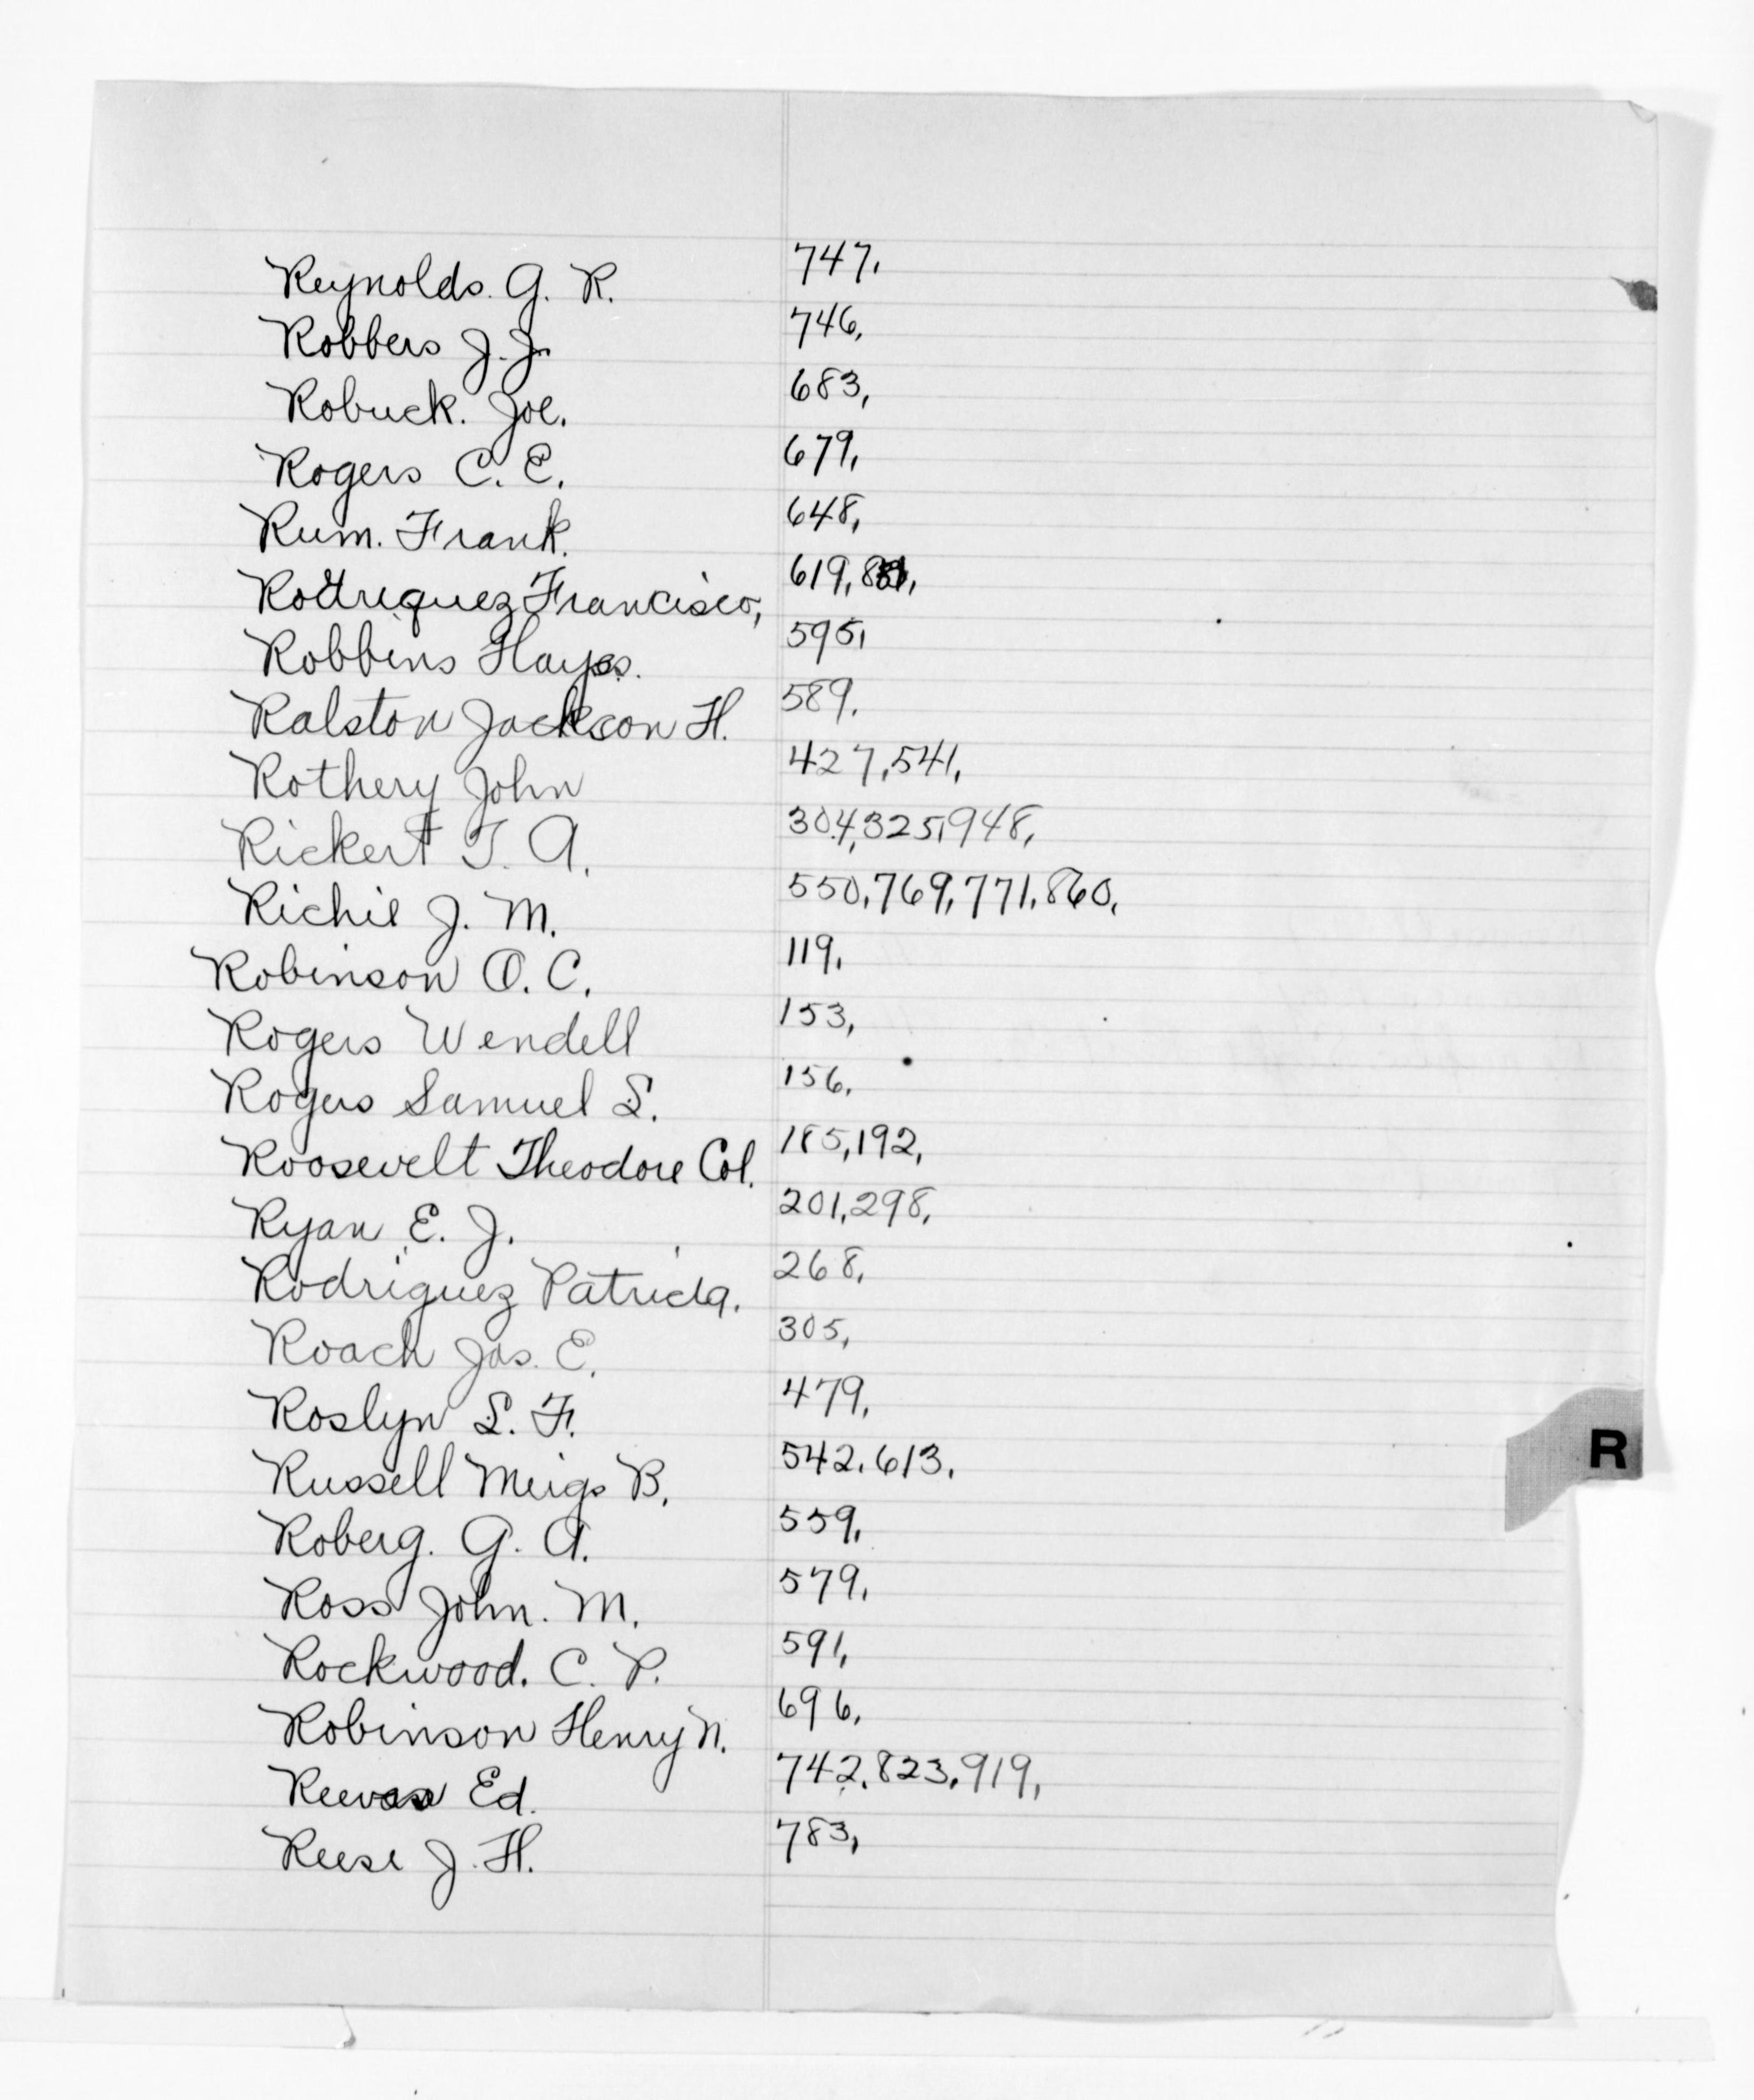 Reynolds. G. R. 747,
Robbers J. J. 746,
Robuck. Joe. 683,
Rogers C. E. 679,
Rum. Frank. 648,
Rodriquez Francisco, 619,
Robbins Hayes. 595,
Ralston Jackson H. 589.
Rothery John 427,541,
Rickert T. A. 304,325,948,
Richie J. M. 550,769,771,860,
Robinson O. C. 119,
Rogers Wendell 153,
Rogers Samuel L. 156,
Roosevelt Theodore Col. 185,192,
Ryan E. J. 201,298,
Rodriguez 268,
Roach Jas. E. 305,
Roslyn L. F. 479,
Russell Meigs B. 542.613.
R
Roberg. G. A. 559,
Ross John. M. 579,
Rockwood. C. P. 591,
Robinson Henry N. 696,
Ed. 742,823,919,
Reese J. H. 783,